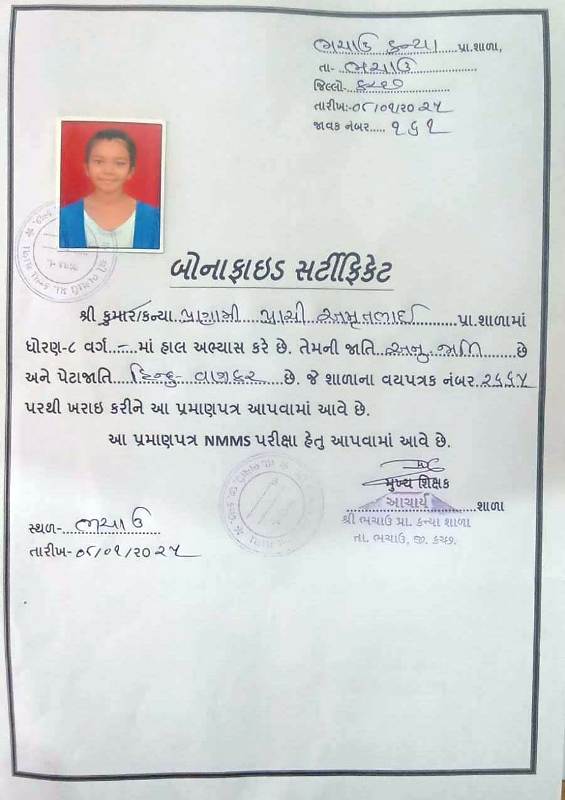 ભચાઉ કન્યા પ્રા.શાળા,
તા- ભચાઉ
જિલ્લો- કચ્છ
તારીખ:-૦૮/૦૧/૨૦૨૫
જાવક નંબર..... ૧૬૧
બોનાફાઇડ સર્ટીફિકેટ
શ્રી કુમાર/કન્યા પ્રાચી અમૃતલાલ પ્રા.શાળામાં
ધોરણ-૮ વર્ગ - માં હાલ અભ્યાસ કરે છે. તેમની જાતિ અનુ. જાતિ છે
અને પેટાજાતિ હિન્દુ- છે. જે શાળાના વયપત્રક નંબર
પરથી ખરાઇ કરીને આ પ્રમાણપત્ર આપવામાં આવે છે.
આ પ્રમાણપત્ર NMMS પરીક્ષા હેતુ આપવામાં આવે છે.
મુખ્ય શિક્ષક
આચાર્ય શાળા
શ્રી ભચાઉ પ્રા. કન્યા શાળા
તા. ભચાઉ, જી. કચ્છ.
સ્થળ- ભચાઉ
તારીખ-૦૮/૦૧/૨૦૨૫